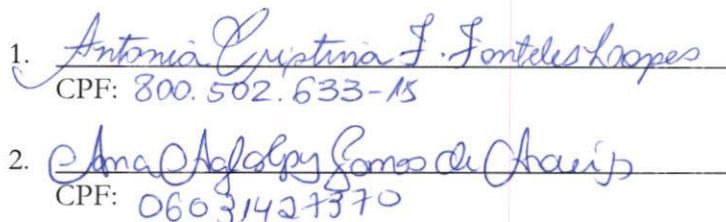 1. Antonia Cristina F. Fonteles Lopes
CPF: 800.502.633-15
2. Ana de Araujo
CPF: 06031427370